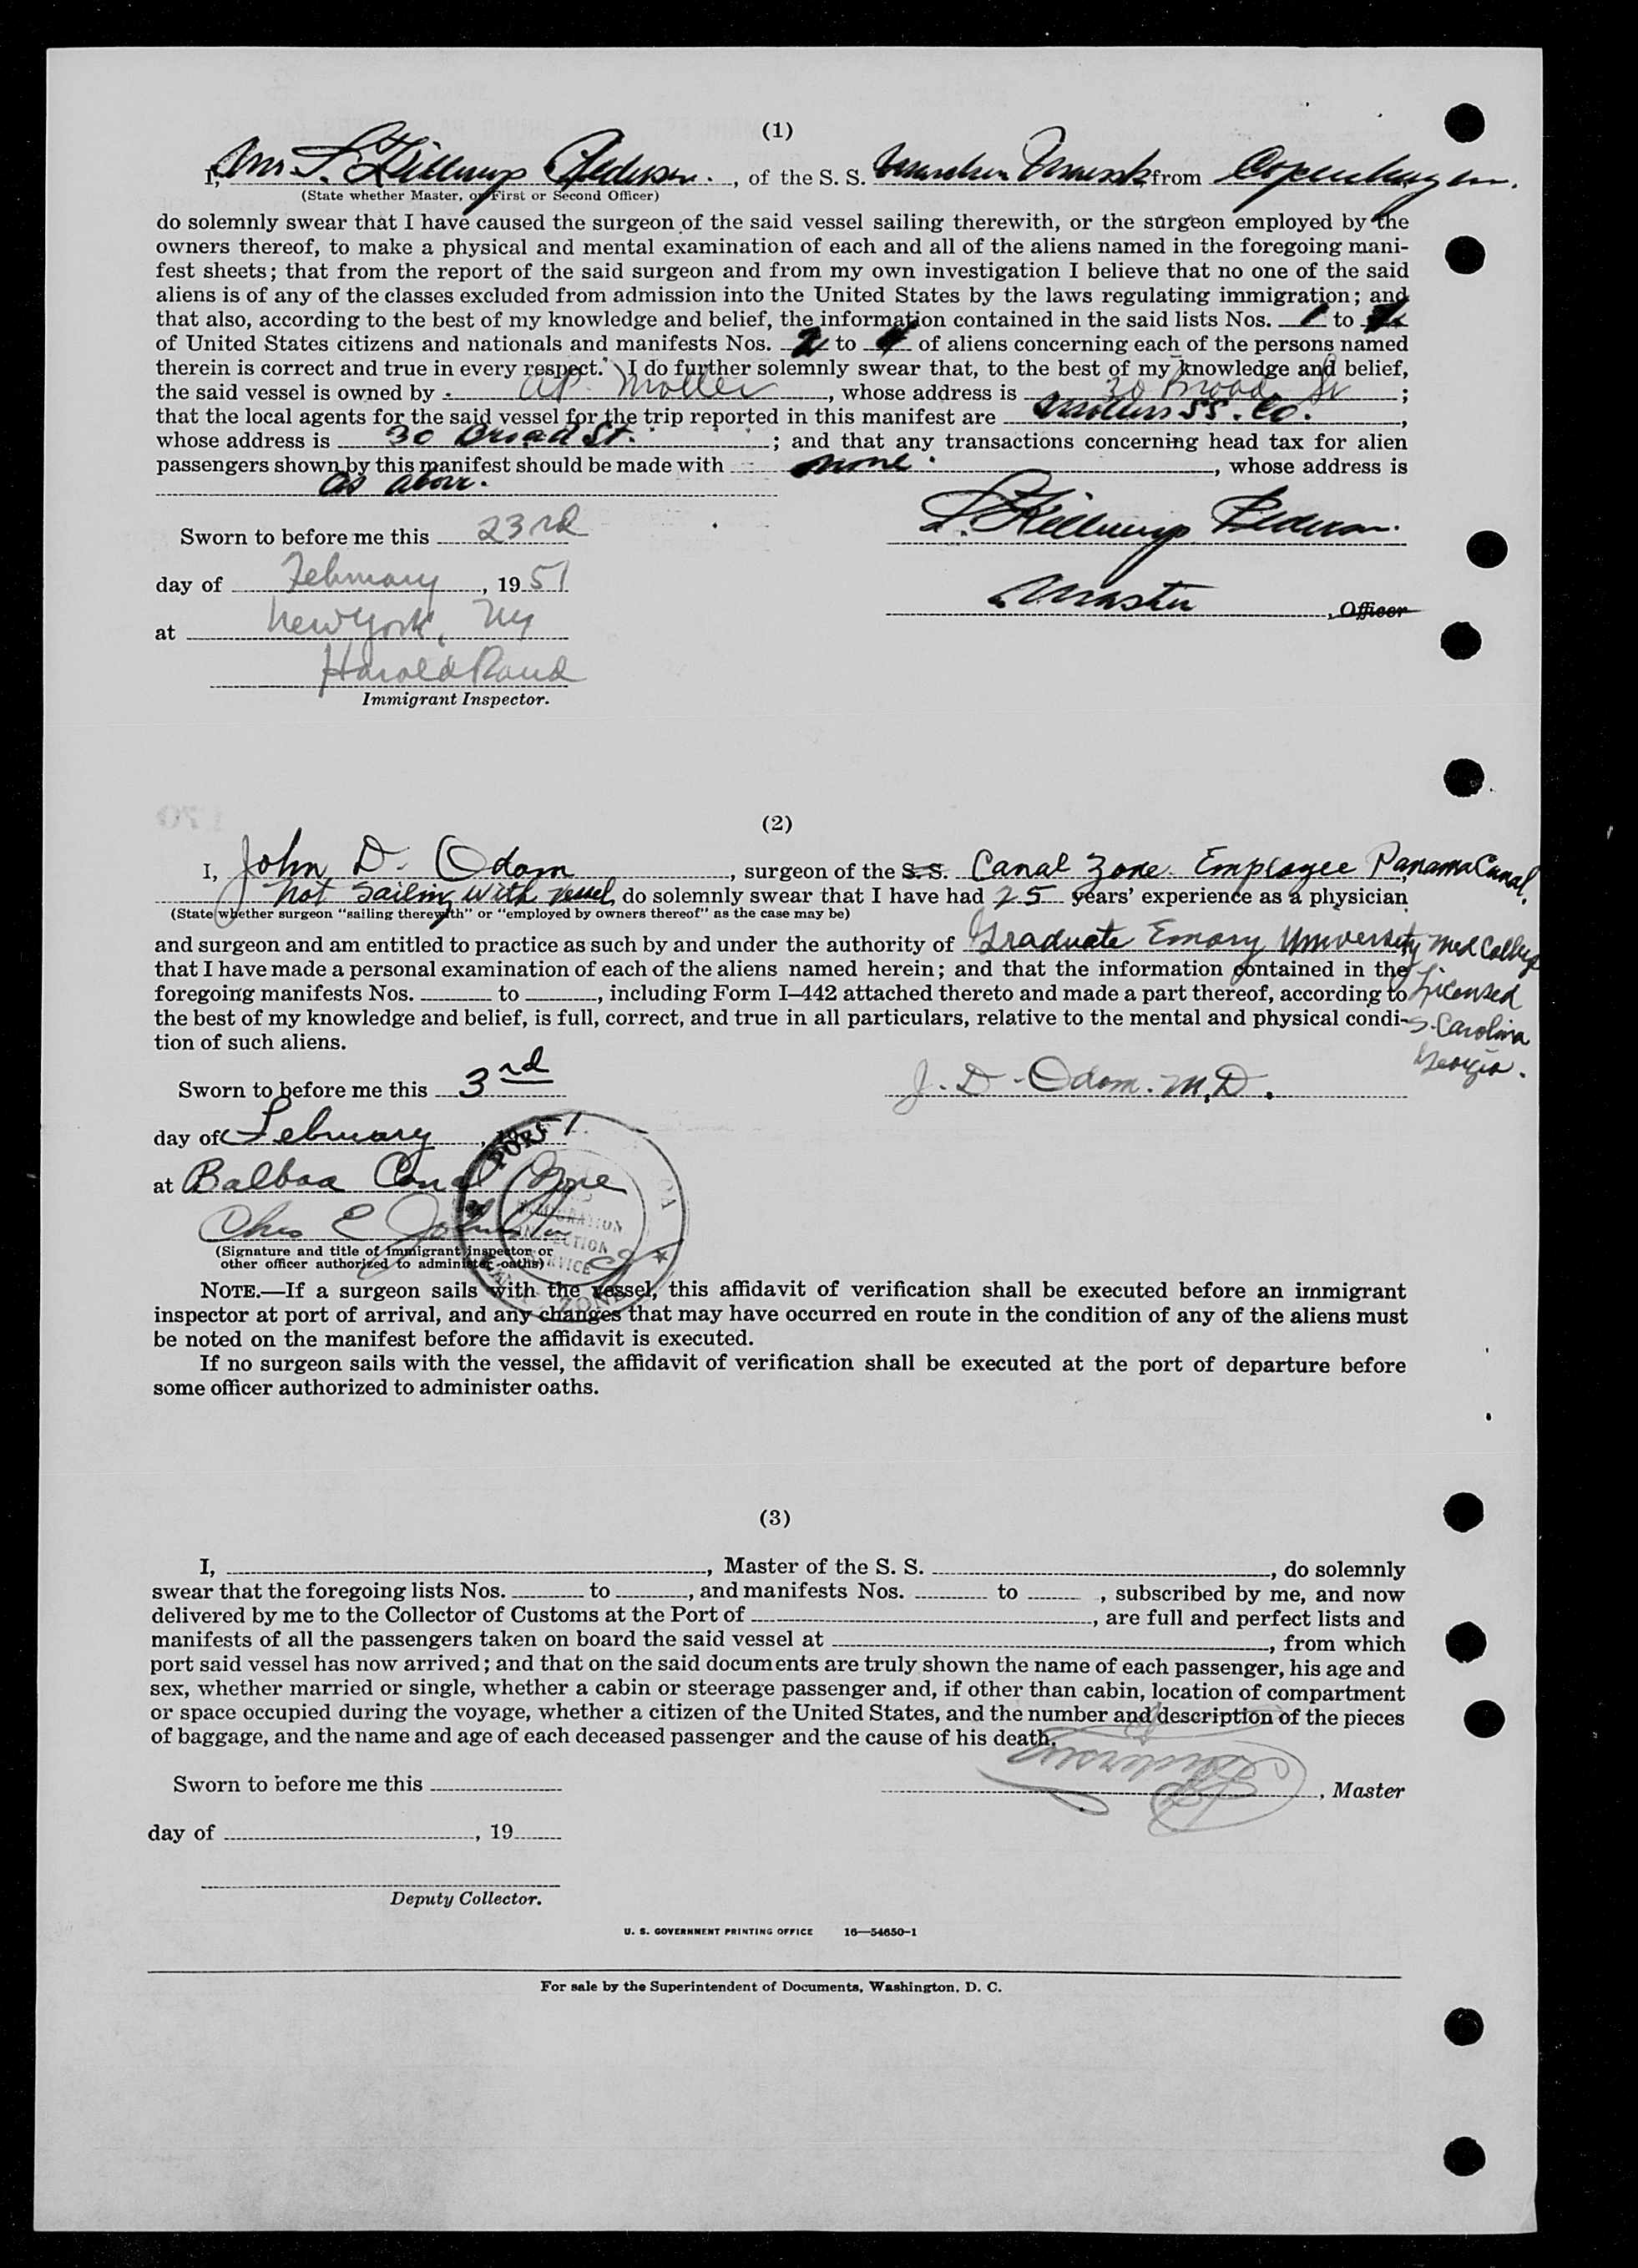 (1)
I, S. Pedersen., of the S. S. Maersk from Copenhagen.
(State whether Master, or First or Second Officer)
do solemnly swear that I have caused the surgeon of the said vessel sailing therewith, or the surgeon employed by the
owners thereof, to make a physical and mental examination of each and all of the aliens named in the foregoing mani-
fest sheets; that from the report of the said surgeon and from my own investigation I believe that no one of the said
aliens is of any of the classes excluded from admission into the United States by the laws regulating immigration; and
that also, according to the best of my knowledge and belief, the information contained in the said lists Nos. 1 to
of United States citizens and nationals and manifests Nos. 2 to of aliens concerning each of the persons named
therein is correct and true in every respect. I do further solemnly swear that, to the best of my knowledge and belief,
the said vessel is owned by AP. Moller, whose address is 30 Broad St;
that the local agents for the said vessel for the trip reported in this manifest are Mollers SS. Co.,
whose address is 30 Broad St.; and that any transactions concerning head tax for alien
passengers shown by this manifest should be made with none., whose address is
as above.
S. Pedersen.
Sworn to before me this 23rd
day of February, 1951
Master, Officer
at New York, NY
Harold Rand
Immigrant Inspector.
(2)
I, John D. Odom, surgeon of the S. S. Canal Zone Employee Panama Canal,
not sailing with vessel, do solemnly swear that I have had 25 years' experience as a physician
(State whether surgeon "sailing therewith" or "employed by owners thereof" as the case may be)
and surgeon and am entitled to practice as such by and under the authority of Graduate Emory University Med College
that I have made a personal examination of each of the aliens named herein; and that the information contained in the
foregoing manifests Nos. to , including Form I–442 attached thereto and made a part thereof, according to Licensed
the best of my knowledge and belief, is full, correct, and true in all particulars, relative to the mental and physical condi- S. Carolina
tion of such aliens. Georgia.
Sworn to before me this 3rd
J. D. Odom. M.D.
day of February, 1951
at Balboa Canal Zone
Chas E
(Signature and title of immigrant inspector or
other officer authorized to administer oaths)
PORT
IMMIGRATION
INSPECTION
SERVICE
ZONE
NOTE.—If a surgeon sails with the vessel, this affidavit of verification shall be executed before an immigrant
inspector at port of arrival, and any changes that may have occurred en route in the condition of any of the aliens must
be noted on the manifest before the affidavit is executed.
If no surgeon sails with the vessel, the affidavit of verification shall be executed at the port of departure before
some officer authorized to administer oaths.
(3)
I, , Master of the S. S. , do solemnly
swear that the foregoing lists Nos. to , and manifests Nos. to , subscribed by me, and now
delivered by me to the Collector of Customs at the Port of , are full and perfect lists and
manifests of all the passengers taken on board the said vessel at , from which
port said vessel has now arrived; and that on the said documents are truly shown the name of each passenger, his age and
sex, whether married or single, whether a cabin or steerage passenger and, if other than cabin, location of compartment
or space occupied during the voyage, whether a citizen of the United States, and the number and description of the pieces
of baggage, and the name and age of each deceased passenger and the cause of his death.
Sworn to before me this
, Master
day of , 19
Deputy Collector.
U. S. GOVERNMENT PRINTING OFFICE 16—54650-1
For sale by the Superintendent of Documents, Washington, D. C.